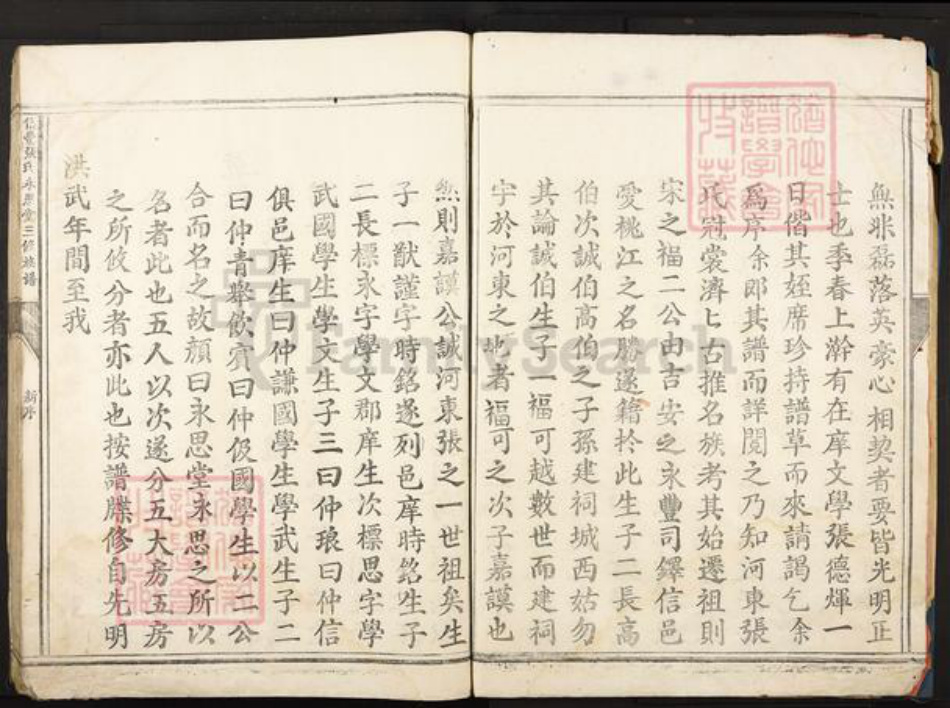 無非磊落英豪心相契者要皆光明正
士也季春上澣有在庠文學張德煇一
日偕其姪席珍持譜草而來請謁乞余
為序余即其譜而詳閱之乃知河東張
氏冠裳濟匕古推名族考其始遷祖則
宋之福二公由吉安之永豐司鐸信邑
愛桃江之名勝遂籍於此生子二長高
伯次誠伯高伯之子孫建祠城西姑勿
其論誠伯生子一福可越數世而建祠
宇於河東之地者福可之次子嘉謨也
然則嘉謨公誠河東張之一世祖矣生
子一猷謹字時銘遂列邑庠時銘生子
二長標永字學文郡庠生次標思字學
武國學生學文生子三曰仲琅曰仲信
俱邑庠生曰仲謙國學生學武生子二
曰仲青舉飲賓曰仲伋國學生以二公
合而名之故顏曰永思堂永思之所以
名者此也五人以次遂分五大房五房
之所攸分者亦此也按譜牒修自先明
洪武年間至我
張氏永思堂三修族譜
新序
FamilySearch